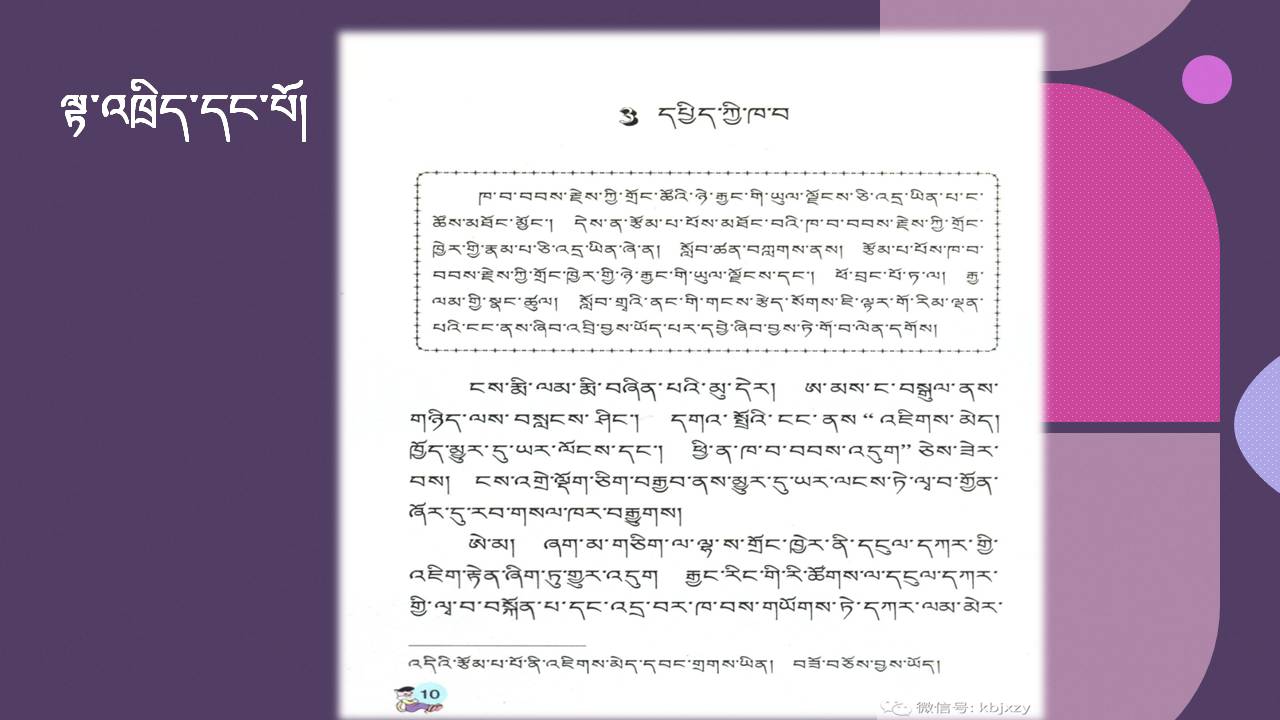 ལྟ་འཁྲིད་དང་པོ།
༣ དཔྱིད་ཀྱི་ཁ་བ
ཁ་བ་བབས་རྗེས་ཀྱི་གྲོང་ཚོའི་ཉེ་རྒྱང་གི་ཡུལ་ལྗོངས་ཅི་འདྲ་ཡིན་པ་ང་
ཚོས་མཐོང་མྱོང༌། དེས་ན་རྩོམ་པ་པོས་མཐོང་བའི་ཁ་བ་བབས་རྗེས་ཀྱི་གྲོང་
ཁྱེར་གྱི་རྣམ་པ་ཅི་འདྲ་ཡིན་ཞེ་ན། སློབ་ཚན་བཀླགས་ནས། རྩོམ་པ་པོས་ཁ་བ་
བབས་རྗེས་ཀྱི་གྲོང་ཁྱེར་གྱི་ཉེ་རྒྱང་གི་ཡུལ་ལྗོངས་དང༌། ཕོ་བྲང་པོ་ཏ་ལ། རྒྱ་
ལམ་གྱི་སྣང་ཚུལ། སློབ་གྲྭའི་ནང་གི་གངས་རྩེད་སོགས་ཇི་ལྟར་གོ་རིམ་ལྡན་
པའི་ངང་ནས་ཞིབ་འབྲི་བྱས་ཡོད་པར་དབྱེ་ཞིབ་བྱས་ཏེ་གོ་བ་ལེན་དགོས།
ངས་རྨི་ལམ་རྨི་བཞིན་པའི་མུ་དེར། ཨ་མས་ང་བསྐུལ་ནས་
གཉིད་ལས་བསླངས་ཤིང༌། དགའ་སྤྲོའི་ངང་ནས “ འཇིགས་མེད།
ཁྱོད་མྱུར་དུ་ཡར་ལོངས་དང༌། ཕྱི་ན་ཁ་བ་བབས་འདུག” ཅེས་ཟེར་
བས། ངས་འགྲེ་ལྡོག་ཅིག་བརྒྱབ་ནས་མྱུར་དུ་ཡར་ལངས་ཏེ་ལྭ་བ་གྱོན་
ཞོར་དུ་རབ་གསལ་ཁར་བརྒྱུགས།
ཨེ་མ། ཞག་མ་གཅིག་ལ་ལྷ་ས་གྲོང་ཁྱེར་ནི་དངུལ་དཀར་གྱི་
འཇིག་རྟེན་ཞིག་ཏུ་གྱུར་འདུག རྒྱང་རིང་གི་རི་ཚོགས་ལ་དངུལ་དཀར་
གྱི་ལྭ་བ་བསྐོན་པ་དང་འདྲ་བར་ཁ་བས་གཡོགས་ཏེ་དཀར་ལམ་མེར་
འདིའི་རྩོམ་པ་པོ་ནི་འཇིགས་མེད་དབང་གྲགས་ཡིན། བཟོ་བཅོས་བྱས་ཡོད།
10
微信号: kbjxzy